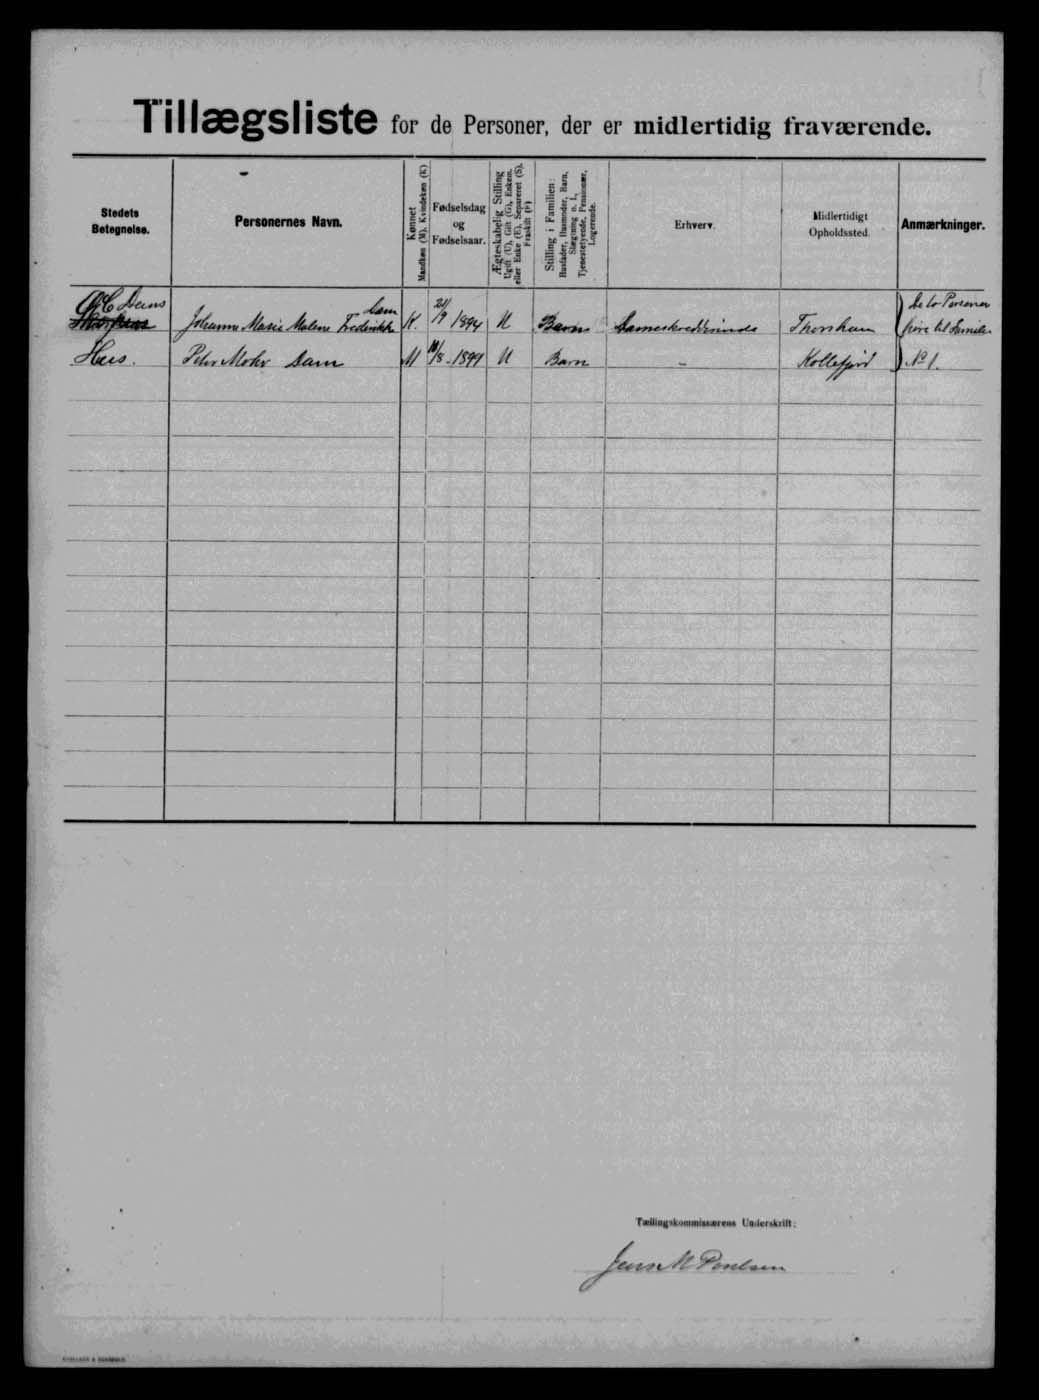 Tillægsliste for de Personer, der er midlertidig fraværende.
Stedets Betegnelse.
Personernes Navn.
Kønnet
Mandkøn (M). Kvindekøn (K)
Fødselsdag
og
Fødselsaar.
Ægteskabelig Stilling
Ugift (U), Gift (G), Enkem.
eller Enke (E), Separeret (S),
Fraskilt (F)
Stilling i Familien:
Husfader, Husmoder, Barn,
Slægtning o. l.,
Tjenestetyende, Pensionær,
Logerende.
Erhverv.
Midlertidigt
Opholdssted.
Anmærkninger.
Dams
Johanne Marie Malene Frederikke Dam K. 21/9 1894 U Barn Dameskrædderinde Thorshavn De to Personer
Hus. Peter Mohr Dam M 11/8-1899 U Barn - Kollefjord høre til Familie
No 1.
Tællingskommissærens Underskrift:
Jens M Poulsen